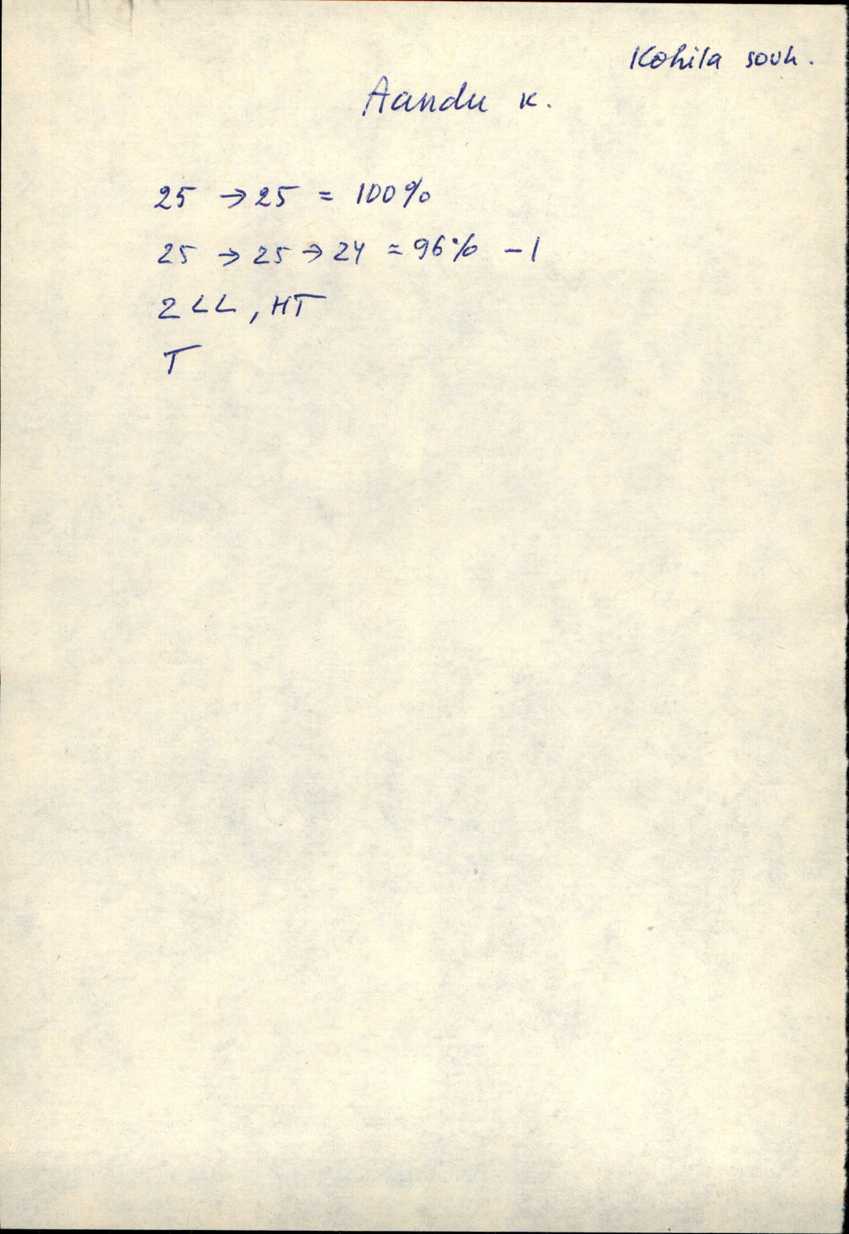 Kohila sovh.
Aandu k.
25 → 25 = 100%
25 → 25 → 24 = 96% - 1
2 LL, HT
T